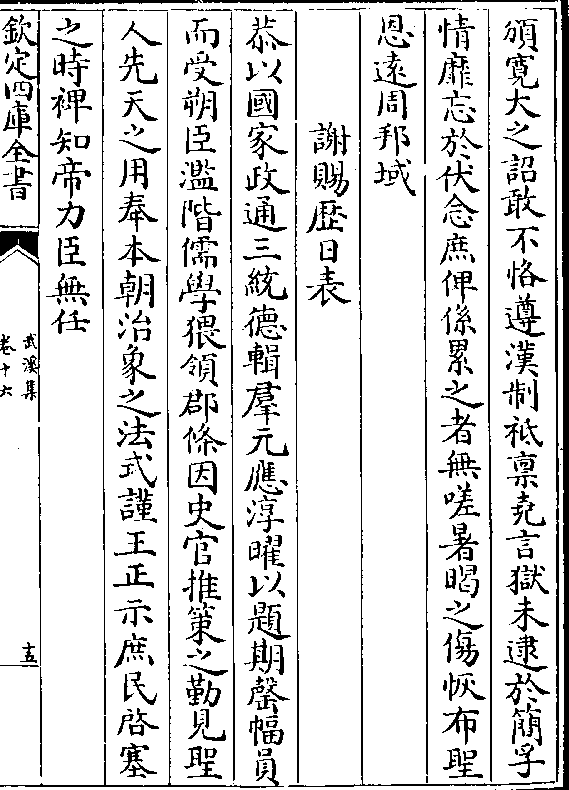 頒寛大之詔敢不恪遵漢制祗禀堯言獄未逮於簡孚
情靡忘於伏念庶俾係累之者無嗟暑暍之傷恢布聖
恩遠周邦域
謝賜歴日表
恭以國家政通三統德輯羣元應淳曜以題期罄幅員
而受朔臣濫階儒學猥領郡條因史官推策之勤見聖
人先天之用奉本朝治象之法式謹王正示庶民啓塞
之時裨知帝力臣無任
欽定四庫全書
武溪集
卷十六
十五